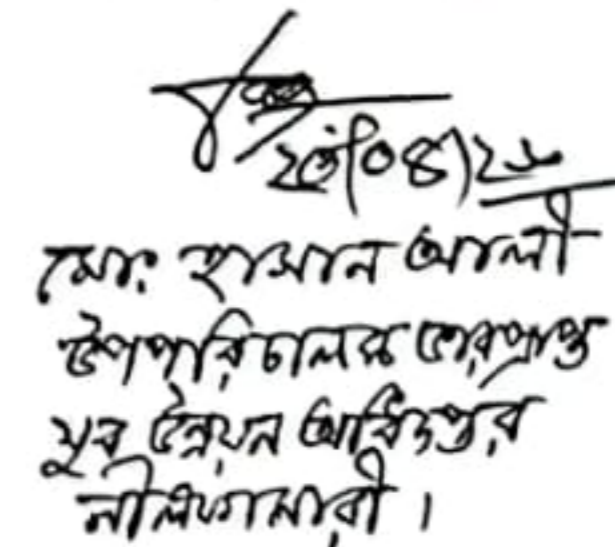 মোঃ হাসান আলী
উপপরিচালক ভারপ্রাপ্ত
যুব উন্নয়ন অধিদপ্তর
নীলফামারী।